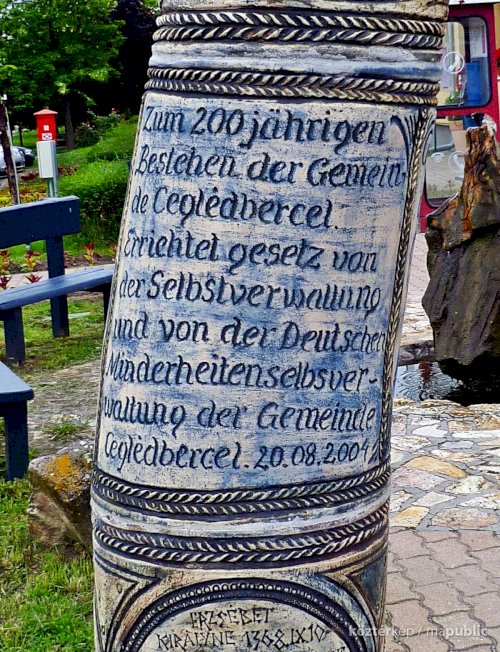 Zum 200 jährigen
Bestehen der Gemein-
de Ceglédbercel.
Errichtet gesetz von
der Selbstverwaltung
und von der Deutschen
Minderheitenselbsver-
waltung der Gemeinde
Ceglédbercel. 20.08.2004
ERZSÉBET
KIRÁLYNÉ 1368.IX.10
közterkep / mapublic